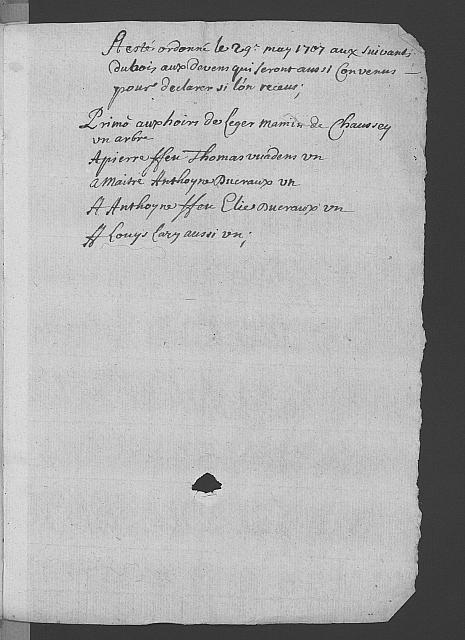 A esté ordonné le 29e may 1707 aux suivants
du bois aux devens qui seront aussi Convenus
pour declarer si l'on receus;
Primò aux hoirs de Leger mamin de Chaussey
vn arbre
A pierre ffeu Thomas vuadens vn
a Maitre Anthoyne Ducraux vn
A Anthoyne ffeu Elie Ducraux vn
Louys Cary aussi vn;